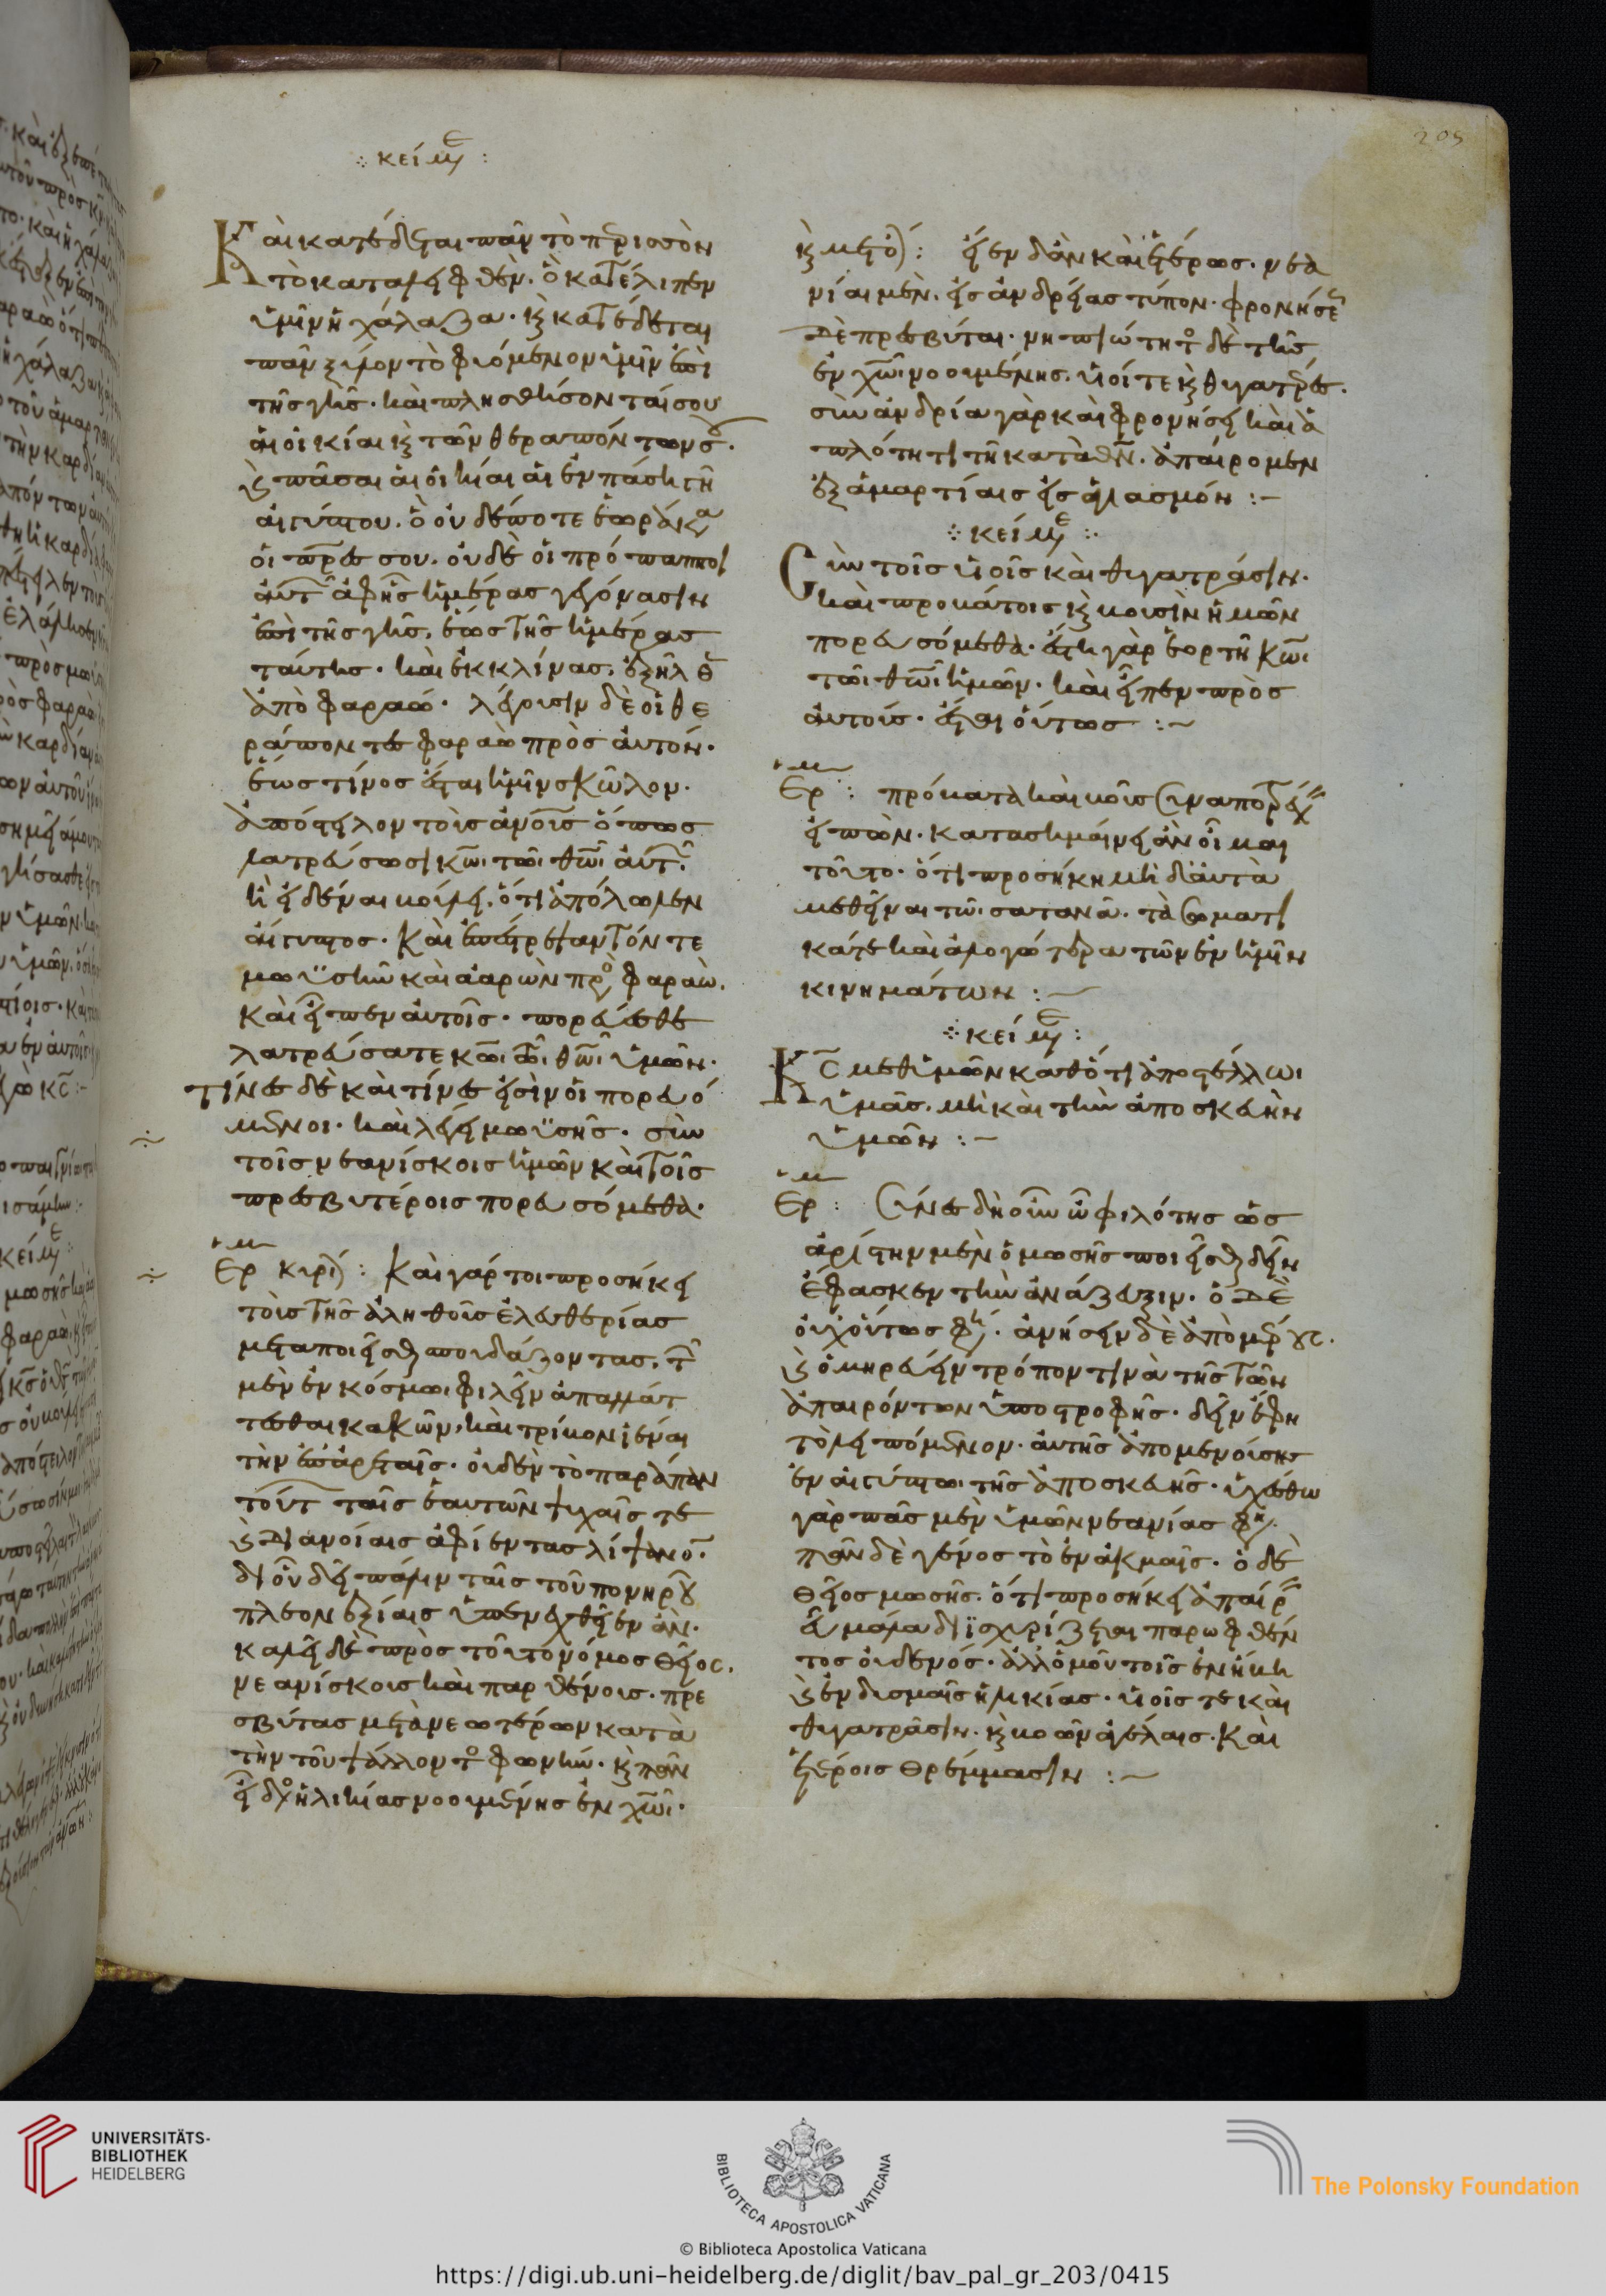 209
κείμε :
Κ αὶ κατέδεται πᾶν τὸ περισσὸν
τὸ καταλειφθὲν. ὃ κατέλιπεν
ὑμῖν ἡ χάλαζα. καὶ κατέδεται
πᾶν ξύλον τὸ φυόμενον ὑμῖν ἐπὶ
τῆς γῆς. καὶ πλησθήσονταί σου
αἱ οἰκίαι καὶ τῶν θεραπόντων σου.
καὶ πᾶσαι αἱ οἰκίαι αἱ ἐν πάσῃ τῇ
αἰγύπτου. ὃ οὐδέποτε ἑωράκα
οἱ πρες σου. οὐδὲ οἱ πρόπαπποι
αὐτῶν ἀφ ῆς ἡμέρας γεγόνασιν
ἐπὶ τῆς γῆς, ἕως τῆς ἡμέρας
ταύτης. καὶ ἐκκλίνας, ἐξῆλθε
ἀπὸ φαραώ. λέγουσιν δὲ οἱ θε
ράποντες φαραὼ πρὸς αὐτόν.
ἕως τίνος ἔσται ἡμῖν σκῶλον.
ἀπόστειλον τοὺς ἀνους ὅπως
λατρεύσωσι κω τῶ θω αὐτῶν.
ἢ εἰδέναι βούλει, ὅτι ἀπόλωλεν
αἴγυπτος. Καὶ ἐπέστρεψαν τόν τε
μωϋσῆν καὶ ἀαρὼν πρὸς φαραώ.
καὶ εἶπεν αὐτοῖς. πορεύεσθε
λατρεύσατε κω τῶ θω ὑμῶν.
τίνες δὲ καὶ τίνες εἰσὶν οἱ πορευό
μενοι. καὶ λέγει μωϋσῆς. σὺν
τοῖς νεανίσκοις ἡμῶν καὶ τοῖς
πρεσβυτέροις πορευσόμεθα.
Ερμ Κυρί) : Καὶ γάρ τοι προσήκει
τοὺς τῆς ἀληθοῦς ἐλευθερίας
μεταποιεῖσθαι σπουδάζοντας, τῶν
μὲν ἐν κόσμωι φιλεῖν ἀπαλλάτ
τεσθαι κακῶν, καὶ τρίβον ἰέναι
τὴν ἐπ᾽ ἀρεταῖς. οὐδὲν τὸ παράπαν
τούτων ταῖς ἑαυτῶν ψυχαῖς τε
καὶ διανοίαις ἀφίεντας λίψανον.
δι οὗ δὴ πάλιν ταῖς τοῦ πονηροῦ
πλεονεξίαις ὑπενεχθεῖεν ἄν.
καλεῖ δὲ πρὸς τοῦτο νόμος θεῖος,
νεανίσκους καὶ παρθένους. πρε
σβύτας μετὰ νεωτέρων κατὰ
τὴν τοῦ ψάλλοντος φωνήν. καὶ πᾶν
εἶδος ἡλικίας νοουμένης ἐν χω.
καὶ μεθό) : εἶεν δὰν καὶ ἑτέρως. νεα
νίαι μὲν, εἰς ἀνδρείας τύπον. φρονήσεως
δὲ πρεσβύται. νηπιώτητος δὲ τῆς
ἐν χω νοουμένης. υἱοί τε καὶ θυγατέρες.
σὺν ἀνδρία γὰρ καὶ φρονήσει καὶ ἁ
πλότητι τῆ κατὰ θν. ἀπαίρομεν
ἐξ ἁμαρτίαις εἰς ἁγιασμόν : -
κείμε :
Σ ὺν τοῖς υἱοῖς καὶ θυγατράσιν.
καὶ προβάτοις καὶ βουσὶν ἡμῶν
πορευσόμεθα. ἔστι γὰρ ἑορτὴ κω
τῶι θωι ἡμῶν. καὶ εἶπεν πρὸς
αὐτούς. ἔσται οὕτως : ~
Ερμ : πρόβατα καὶ βοῦς συναποτρέχειν
εἰπὼν. κατασημαίνει ἂν οἶμαι
τοῦτο. ὅτι προσήκη μὴ δὲ αὐτὰ
μεθεῖναι τῶ σατανᾶ. τὰ σωματι
κά τε καὶ ἀλογώτερα τῶν ἐν ἡμῖν
κινημάτων : -
κείμε :
Κ ς μεθ ὑμῶν καθότι ἀποστέλλωι
ὑμᾶς, μὴ καὶ τὴν ἀποσκευὴν
ὑμῶν : -
Ερμ : Σύνες δὴ οὖν ὦ φιλότης ὡς
ἀρίστην μὲν ὁ μωσῆς ποιεῖσθαι δεῖν
ἔφασκεν τὴν ἀνάζευξιν. ὁ δὲ
οὐχ οὕτως φη. ἀνήσειν δὲ ἀπὸ μέρους.
καὶ ὁμηρεύειν τρόπον τινὰ τῆς τῶν
ἀπαιρόντων ὑποστροφῆς. δεῖν ἔφη
τὸ λειπόμενον. αὐτῆς ἀπομενούσης
ἐν αἰγύπτω τῆς ἀποσκευῆς. οἰχέσθω
γὰρ πᾶς μὲν ὑμῶν νεανίας φη.
πᾶν δὲ γένος τὸ ἐν ἀκμαῖς. ὁ δὲ
θεῖος μωσῆς. ὅτι προσήκει ἀπαίρειν
εὖ μάλα διϊσχυρίζεται παρωφθέν
τος οὐδενός. ἀλλ᾽ ὁμοῦ τοῖς ἐν ἥβη
καὶ ἐν δυσμαῖς ἡλικίας. υἱοῖς τε καὶ
θυγατράσιν. καὶ βοῶν ἀγέλαις. καὶ
ἑτέροις θρέμμασιν : -
UNIVERSITÄTS-
BIBLIOTHEK
HEIDELBERG
BIBLIOTECA APOSTOLICA VATICANA
The Polonsky Foundation
© Biblioteca Apostolica Vaticana
https://digi.ub.uni-heidelberg.de/diglit/bav_pal_gr_203/0415